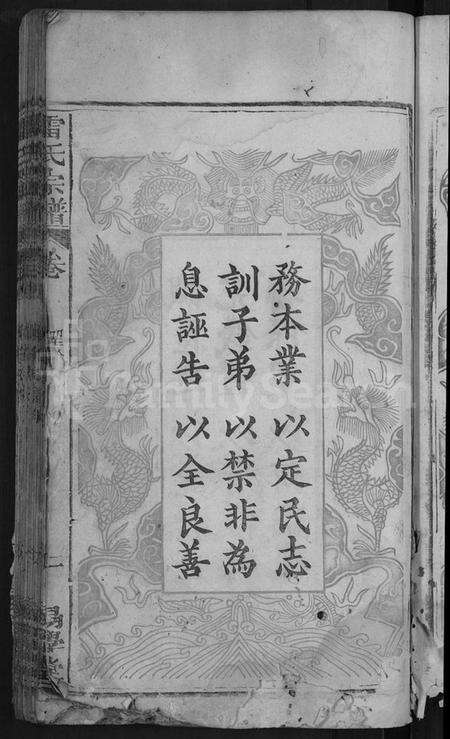 務本業 以定民志
訓子弟 以禁非為
息誣告 以全良善
雷氏宗譜
卷
FamilySearch